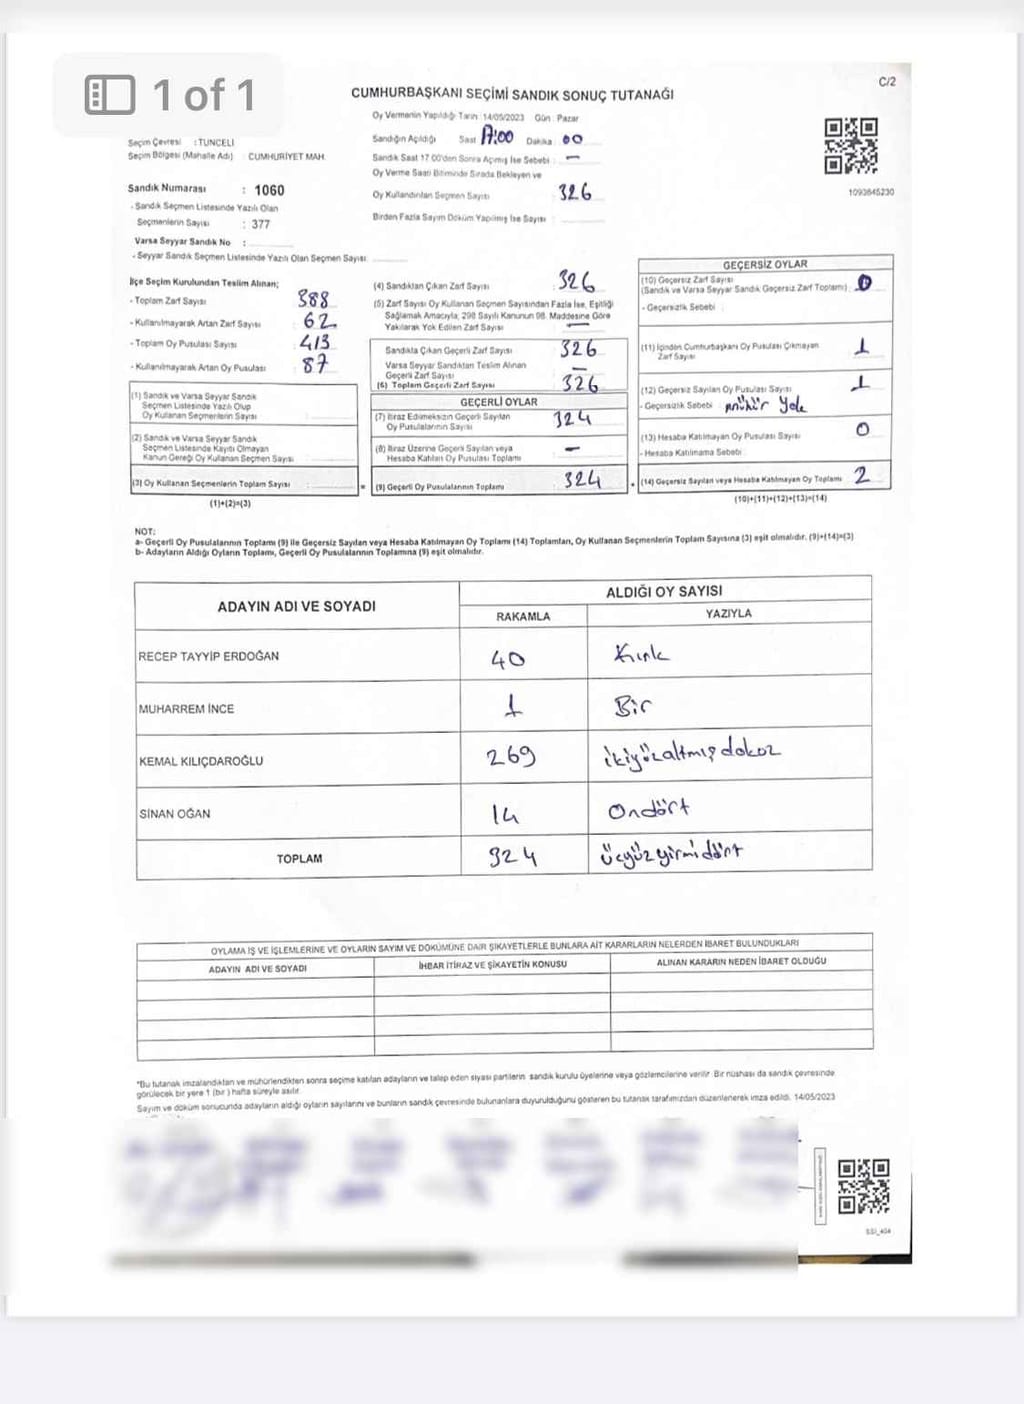 1 of 1
C/2
CUMHURBAŞKANI SEÇİMİ SANDIK SONUÇ TUTANAĞI
Oy Vermenin Yapıldığı Tarih 14/05/2023 Gün : Pazar
Seçim Çevresi : TUNCELİ
Seçim Bölgesi (Mahalle Adı) : CUMHURİYET MAH.
Sandık Numarası : 1060
- Sandık Seçmen Listesinde Yazılı Olan
Seçmenlerin Sayısı : 377
Varsa Seyyar Sandık No :
- Seyyar Sandık Seçmen Listesinde Yazılı Olan Seçmen Sayısı
Sandığın Açıldığı Saat 17:00 Dakika 00
Sandık Saat 17:00'den Sonra Açımış İse Sebebi : —
Oy Verme Saati Bitiminde Sırada Bekleyen ve
Oy Kullandırılan Seçmen Sayısı 326
Birden Fazla Sayım Döküm Yapılmış İse Sayısı
1093645230
İlçe Seçim Kurulundan Teslim Alınan;
- Toplam Zarf Sayısı 388
- Kullanılmayarak Artan Zarf Sayısı 62
- Toplam Oy Pusulası Sayısı 413
- Kullanılmayarak Artan Oy Pusulası 87
(1) Sandık ve Varsa Seyyar Sandık
Seçmen Listesinde Yazılı Olup
Oy Kullanan Seçmenlerin Sayısı
(2) Sandık ve Varsa Seyyar Sandık
Seçmen Listesinde Kayıtlı Olmayan
Kanun Gereği Oy Kullanan Seçmen Sayısı
(3) Oy Kullanan Seçmenlerin Toplam Sayısı
(1)+(2)=(3)
(4) Sandıktan Çıkan Zarf Sayısı 326
(5) Zarf Sayısı Oy Kullanan Seçmen Sayısından Fazla İse, Eşitliği
Sağlamak Amacıyla, 298 Sayılı Kanunun 98. Maddesine Göre
Yakılarak Yok Edilen Zarf Sayısı —
Sandıkta Çıkan Geçerli Zarf Sayısı 326
Varsa Seyyar Sandıktan Teslim Alınan
Geçerli Zarf Sayısı —
(6) Toplam Geçerli Zarf Sayısı 326
GEÇERLİ OYLAR
(7) İtiraz Edilmeksizin Geçerli Sayılan
Oy Pusulalarının Sayısı 324
(8) İtiraz Üzerine Geçerli Sayılan veya
Hesaba Katılan Oy Pusulası Toplamı —
(9) Geçerli Oy Pusulalarının Toplamı 324
GEÇERSİZ OYLAR
(10) Geçersiz Zarf Sayısı
(Sandık ve Varsa Seyyar Sandık Geçersiz Zarf Toplamı) : 0
- Geçersizlik Sebebi
(11) İçinden Cumhurbaşkanı Oy Pusulası Çıkmayan
Zarf Sayısı 1
(12) Geçersiz Sayılan Oy Pusulası Sayısı 1
- Geçersizlik Sebebi mühür Yok
(13) Hesaba Katılmayan Oy Pusulası Sayısı 0
- Hesaba Katılmama Sebebi
(14) Geçersiz Sayılan veya Hesaba Katılmayan Oy Toplamı 2
(10)+(11)+(12)+(13)=(14)
NOT:
a- Geçerli Oy Pusulalarının Toplamı (9) ile Geçersiz Sayılan veya Hesaba Katılmayan Oy Toplamı (14) Toplamları, Oy Kullanan Seçmenlerin Toplam Sayısına (3) eşit olmalıdır. (9)+(14)=(3)
b- Adayların Aldığı Oyların Toplamı, Geçerli Oy Pusulalarının Toplamına (9) eşit olmalıdır.
ADAYIN ADI VE SOYADI
ALDIĞI OY SAYISI
RAKAMLA YAZIYLA
RECEP TAYYİP ERDOĞAN 40 Kırk
MUHARREM İNCE 1 Bir
KEMAL KILIÇDAROĞLU 269 ikiyüzaltmışdokuz
SİNAN OĞAN 14 Ondört
TOPLAM 324 üçyüzyirmidört
OYLAMA İŞ VE İŞLEMLERİNE VE OYLARIN SAYIM VE DÖKÜMÜNE DAİR ŞİKAYETLERLE BUNLARA AİT KARARLARIN NELERDEN İBARET BULUNDUKLARI
ADAYIN ADI VE SOYADI İHBAR İTİRAZ VE ŞİKAYETİN KONUSU ALINAN KARARIN NEDEN İBARET OLDUĞU
*Bu tutanak imzalandıktan ve mühürlendikten sonra seçime katılan adayların ve talep eden siyasi partilerin sandık kurulu üyelerine veya gözlemcilerine verilir. Bir nüshası da sandık çevresinde
görülecek bir yere 1 (bir) hafta süreyle asılır.
Sayım ve döküm sonucunda adayların aldığı oyların sayılarını ve bunların sandık çevresinde bulunanlara duyurulduğunu gösteren bu tutanak tarafımızdan düzenlenerek imza edildi. 14/05/2023
SSİ_404